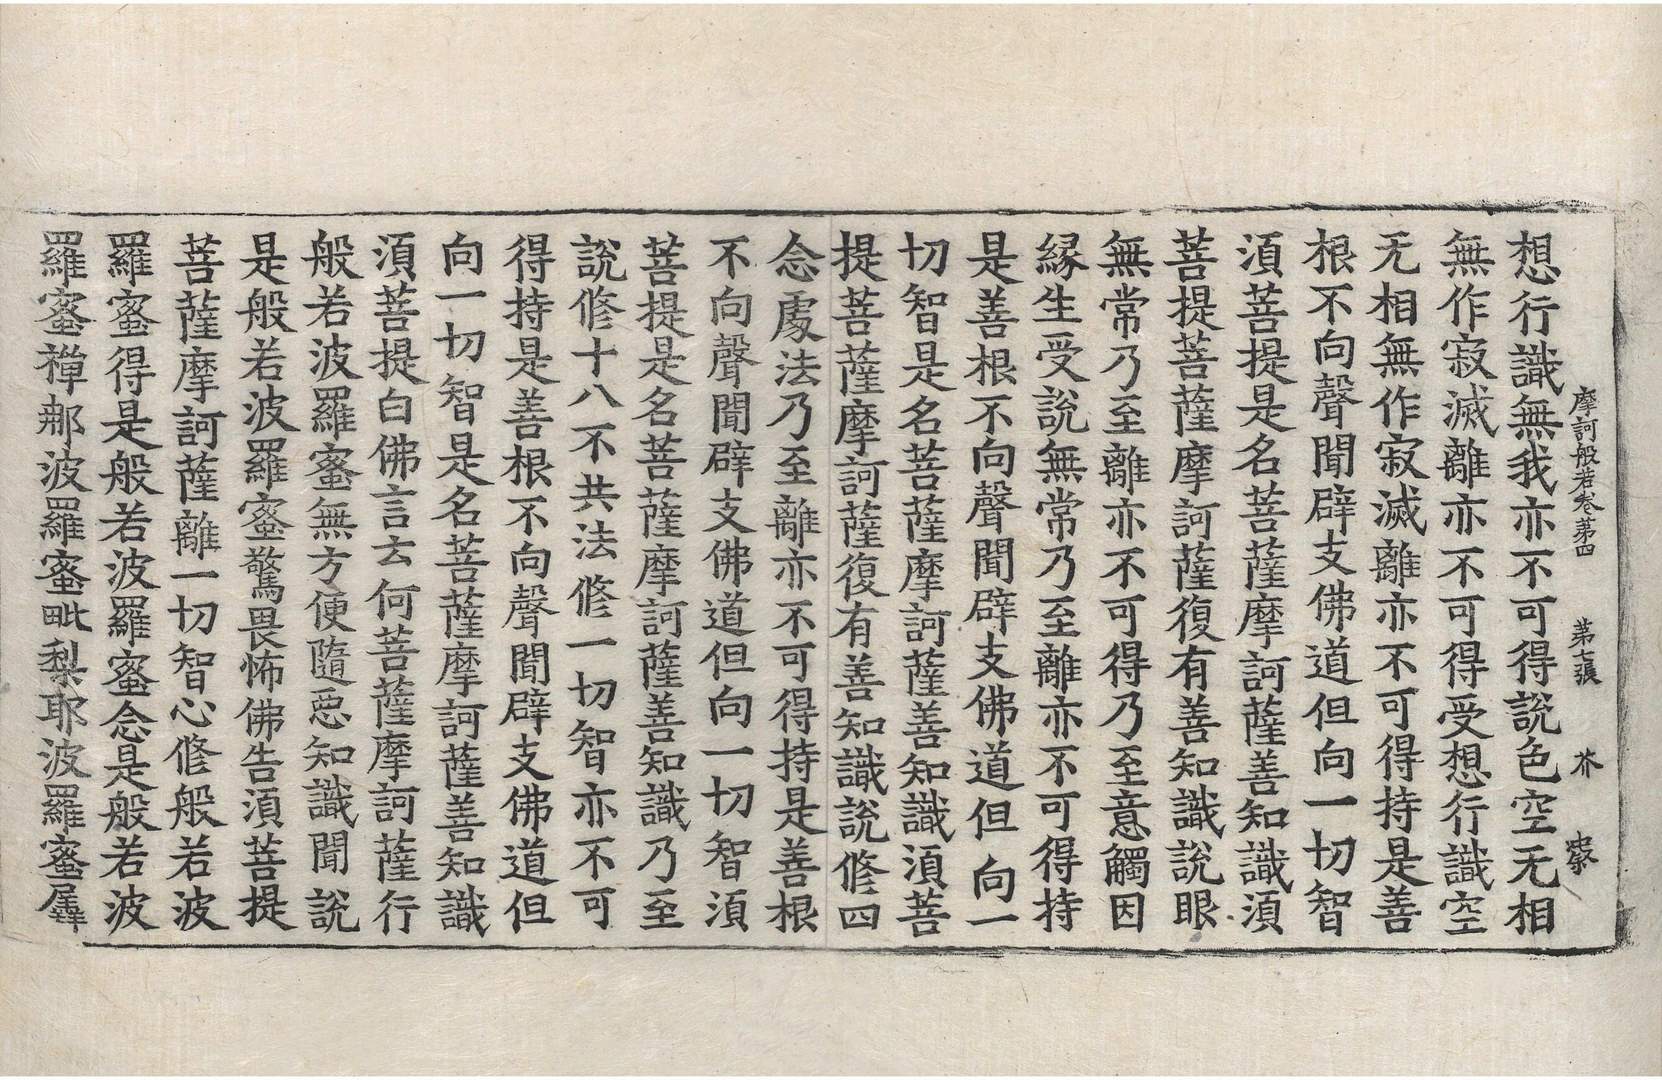 摩訶般若卷第四 第七張 芥
想行識無我亦不可得說色空无相
無作寂滅離亦不可得受想行識空
无相無作寂滅離亦不可得持是善
根不向聲聞辟支佛道但向一切智
須菩提是名菩薩摩訶薩善知識須
菩提菩薩摩訶薩復有善知識說眼
無常乃至離亦不可得乃至意觸因
緣生受說無常乃至離亦不可得持
是善根不向聲聞辟支佛道但向一
切智是名菩薩摩訶薩善知識須菩
提菩薩摩訶薩復有善知識說修四
念處法乃至離亦不可得持是善根
不向聲聞辟支佛道但向一切智須
菩提是名菩薩摩訶薩善知識乃至
說修十八不共法修一切智亦不可
得持是善根不向聲聞辟支佛道但
向一切智是名菩薩摩訶薩善知識
須菩提白佛言云何菩薩摩訶薩行
般若波羅蜜無方便隨惡知識聞說
是般若波羅蜜驚畏怖佛告須菩提
菩薩摩訶薩離一切智心修般若波
羅蜜得是般若波羅蜜念是般若波
羅蜜禪那波羅蜜毗梨耶波羅蜜羼